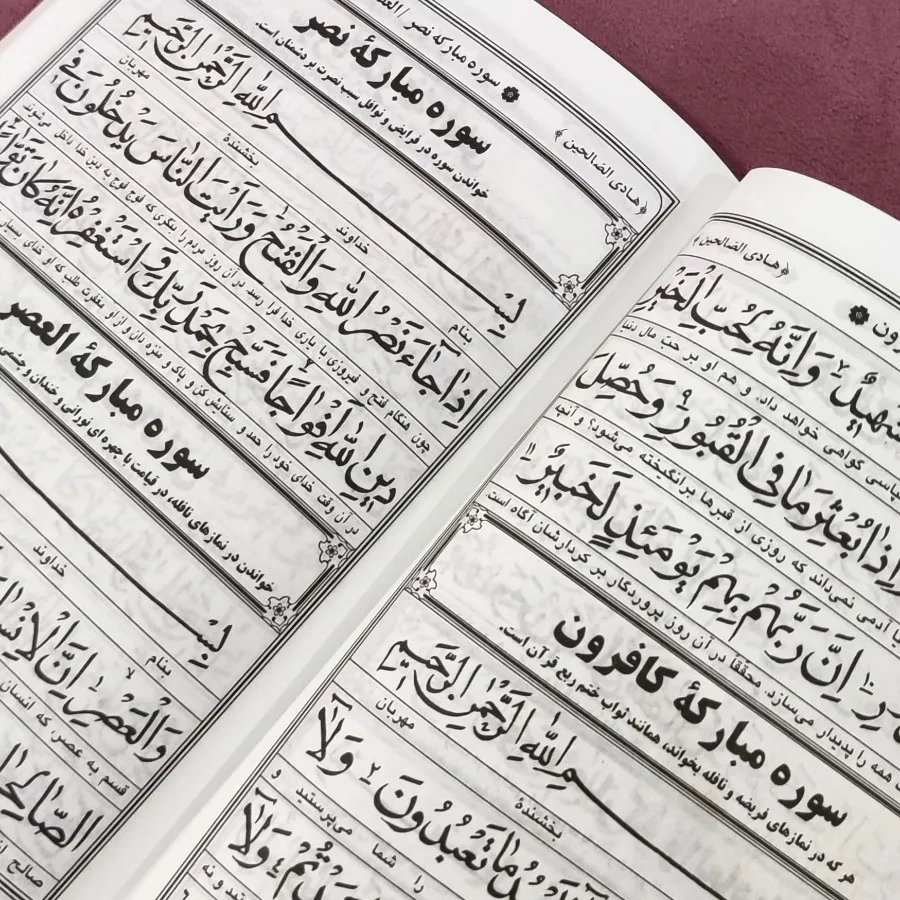 ﴿هادی الصالحین﴾
وَإِنَّهُ لِحُبِّ الْخَيْرِ
گواهی خواهد داد، و هم او بر حب مال دنیا
بُعْثِرَ مَا فِي الْقُبُورِ ۹ وَحُصِّلَ
آدمی نمی‌داند که روزی از قبرها برانگیخته می‌شود؟ و آنچه
إِنَّ رَبَّهُمْ بِهِمْ يَوْمَئِذٍ لَخَبِيرٌ ۱۱
همه را پدیدار می‌سازد. محققا در آن روز پروردگار بر کردارشان آگاه است
سوره مبارکهٔ کافرون
هر که در نمازهای فریضه و نافله بخواند، همانند ثواب ختم ربع قرآن است.
بِسْمِ اللَّهِ الرَّحْمٰنِ الرَّحِيمِ
بخشندهٔ مهربان
مَا تَعْبُدُونَ ۲ وَلَا
را شما می‌پرستید و
سوره مبارکه نصر
﴿هادی الصالحین﴾
سوره مبارکهٔ نصر
خواندن سوره در فرایض و نوافل سبب نصرت بر دشمنان است.
بِسْمِ اللَّهِ الرَّحْمٰنِ الرَّحِيمِ
بنام خداوند بخشندهٔ مهربان
إِذَا جَاءَ نَصْرُ اللَّهِ وَالْفَتْحُ ۱ وَرَأَيْتَ النَّاسَ يَدْخُلُونَ فِي
چون هنگام فتح و فیروزی با یاری خدا فرا رسد در آن روز مردم را بنگری که فوج فوج به دین خدا داخل می‌شوند
دِينِ اللَّهِ أَفْوَاجًا ۲ فَسَبِّحْ بِحَمْدِ رَبِّكَ وَاسْتَغْفِرْهُ إِنَّهُ كَانَ
در آن وقت خدای خود را حمد و ستایش کن و پاک و منزه دان و از او مغفرت طلب که او خدای بسیار
سوره مبارکهٔ العصر
خواندن در نمازهای نافله، در قیامت با چهره ای نورانی و خندان و چشمی
بنام خداوند
وَالْعَصْرِ ۱ إِنَّ الْإِنْسَانَ
قسم به عصر، که انسان
الصَّالِحَاتِ
صالح